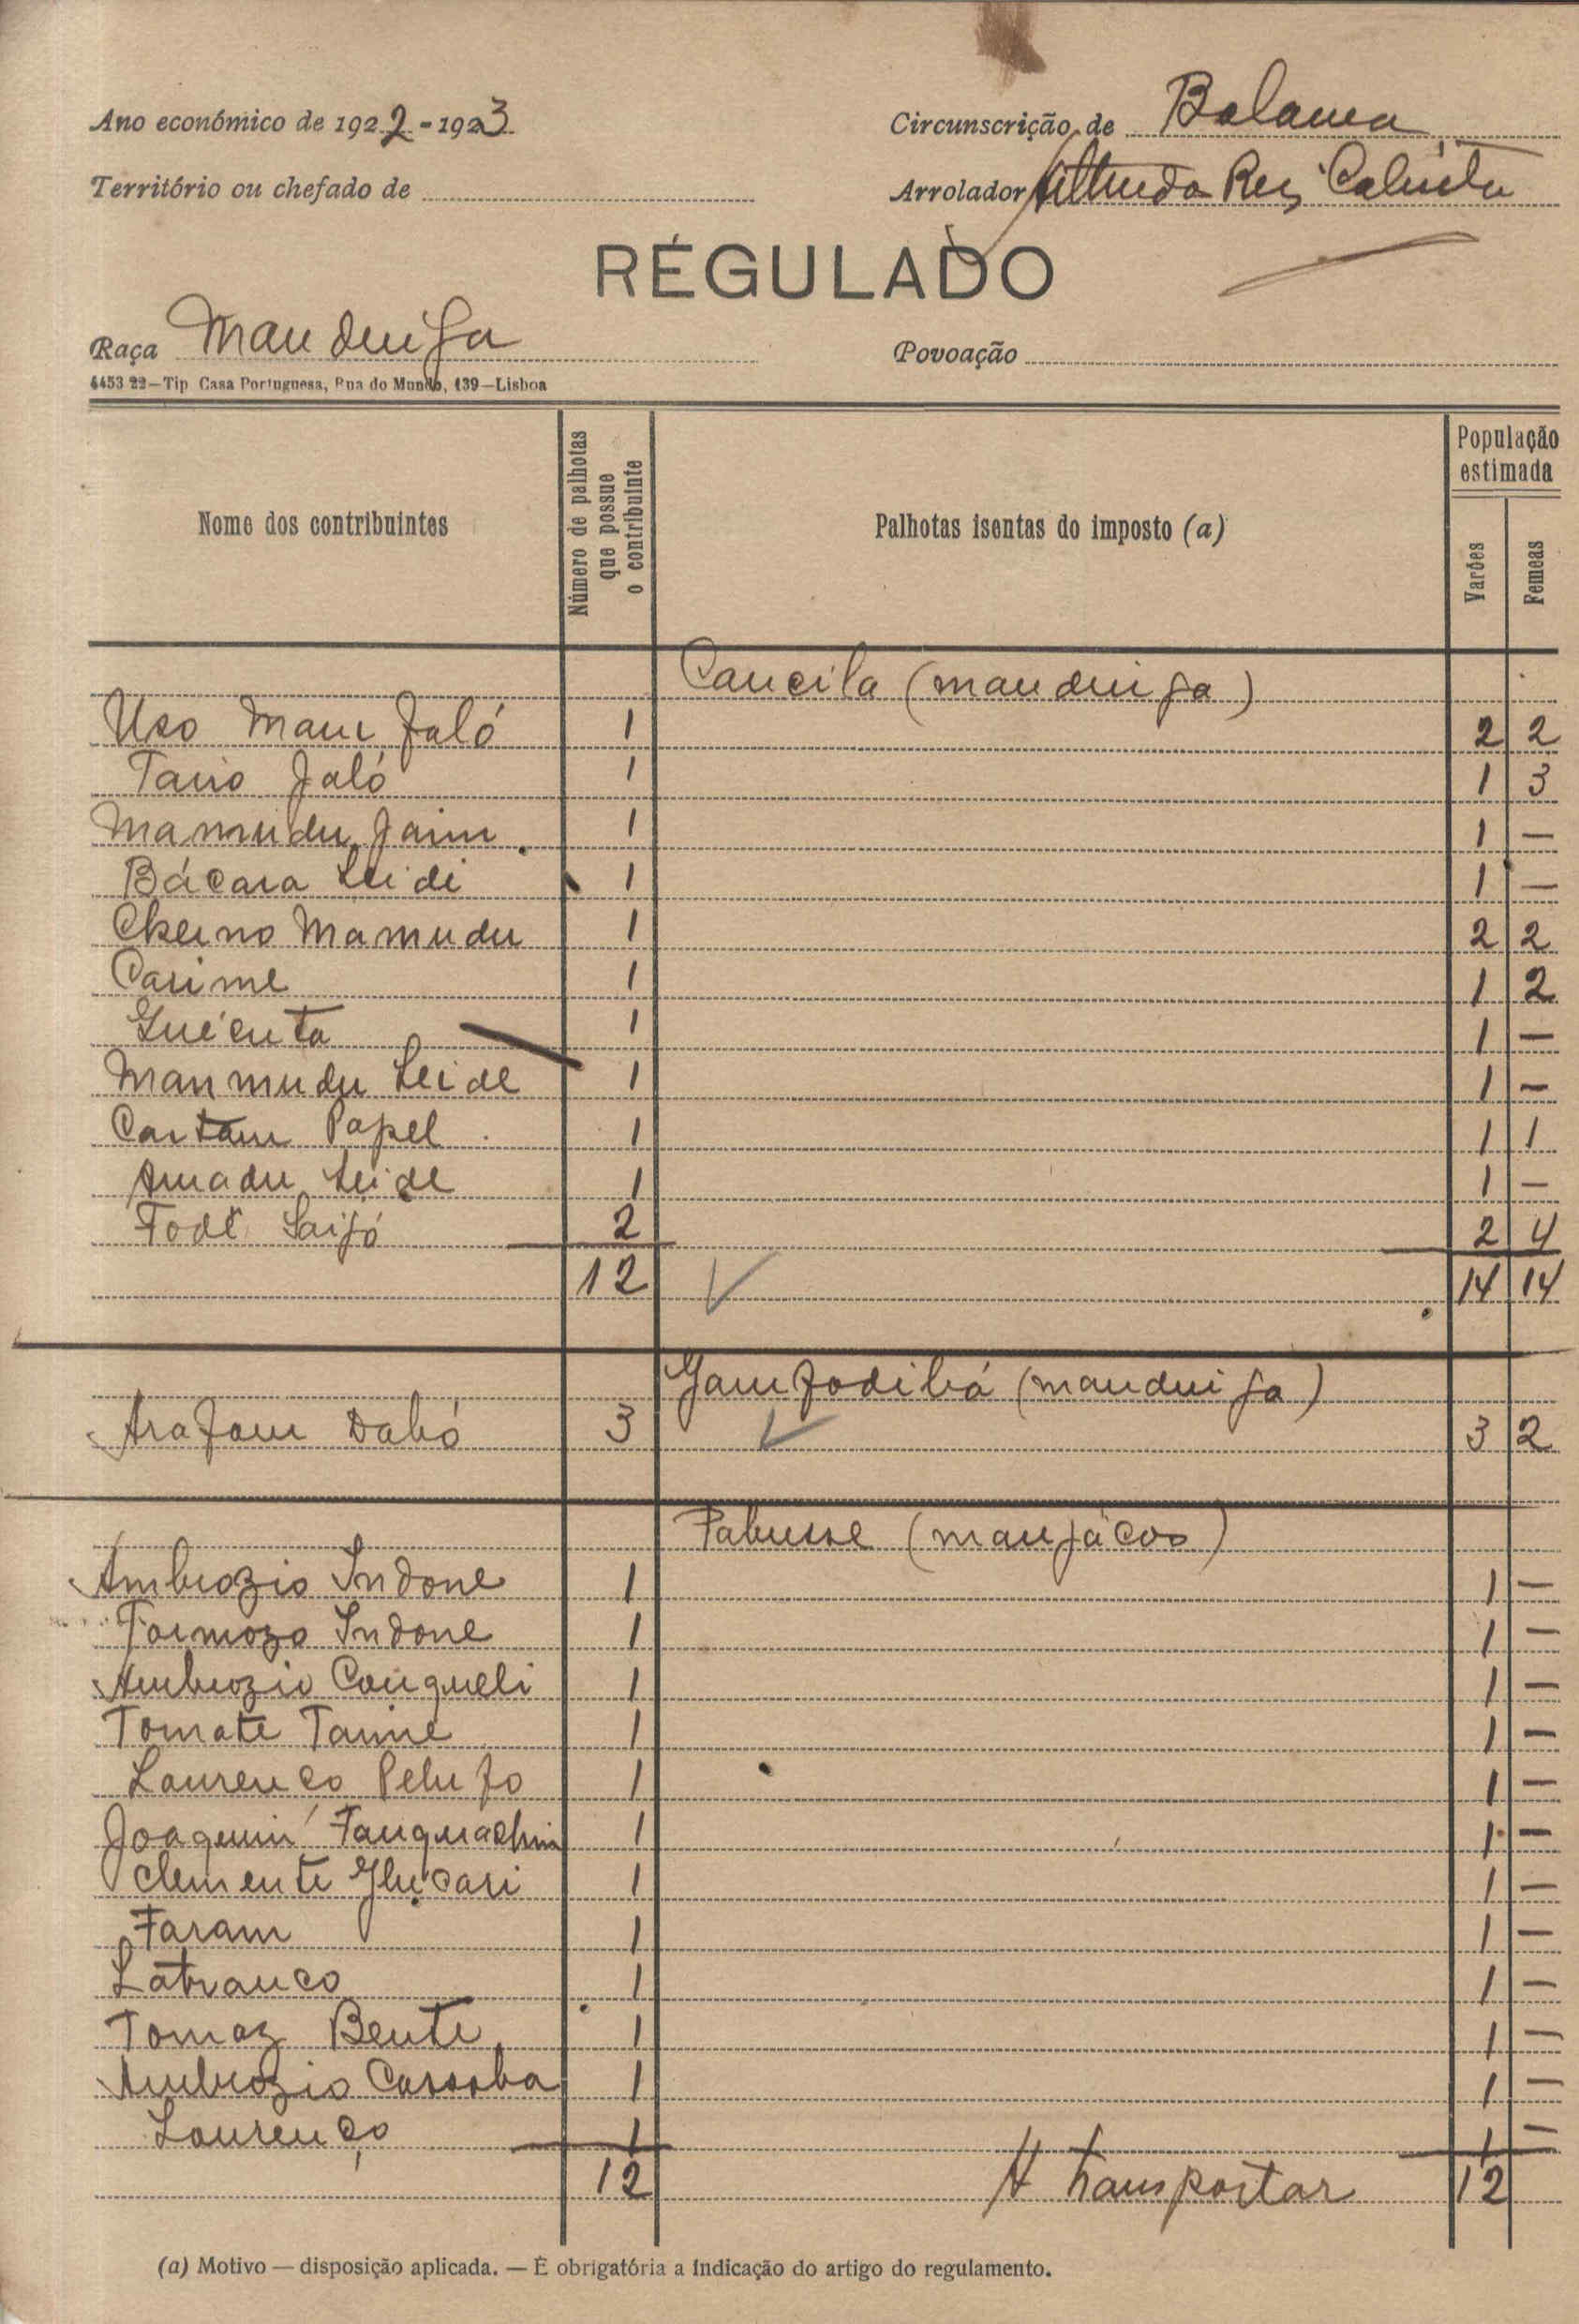 Ano económico de 1922-1923
Circunscrição de Bolama
Território ou chefado de
Arrolador Alfredo Reis
RÉGULADO
Raça Mandinga
Povoação
4453 22—Tip Casa Portuguesa, Rua do Mundo, 139—Lisboa
Nome dos contribuintes
Número de palhotas que possue o contribuinte
Palhotas isentas do imposto (a)
População estimada
Varões
Femeas
Cancila (mandinga)
Uso Mam Jaló 1 2 2
Jaló 1 1 3
Mamudu 1 1 —
Bácara Seidi 1 1 —
Cherno Mamudu 1 2 2
Carime 1 1 2
Guécuta 1 1 —
Manmudu Seide 1 1 —
Papel 1 1 1
Amadu Seide 1 1 —
Fodé 2 2 4
12 14 14
(mandinga)
Arafam Dabó 3 3 2
(manjácos)
Ambrozio Indone 1 1 —
Formozo Indone 1 1 —
Ambrozio 1 1 —
Tomate 1 1 —
Lourenço 1 1 —
Joaquim 1 1 —
Clemente 1 1 —
Faram 1 1 —
Latranco 1 1 —
Tomaz Bente 1 1 —
Ambrozio Cassoba 1 1 —
Lourenço 1 1 —
12 A transportar 12
(a) Motivo — disposição aplicada. — É obrigatória a indicação do artigo do regulamento.